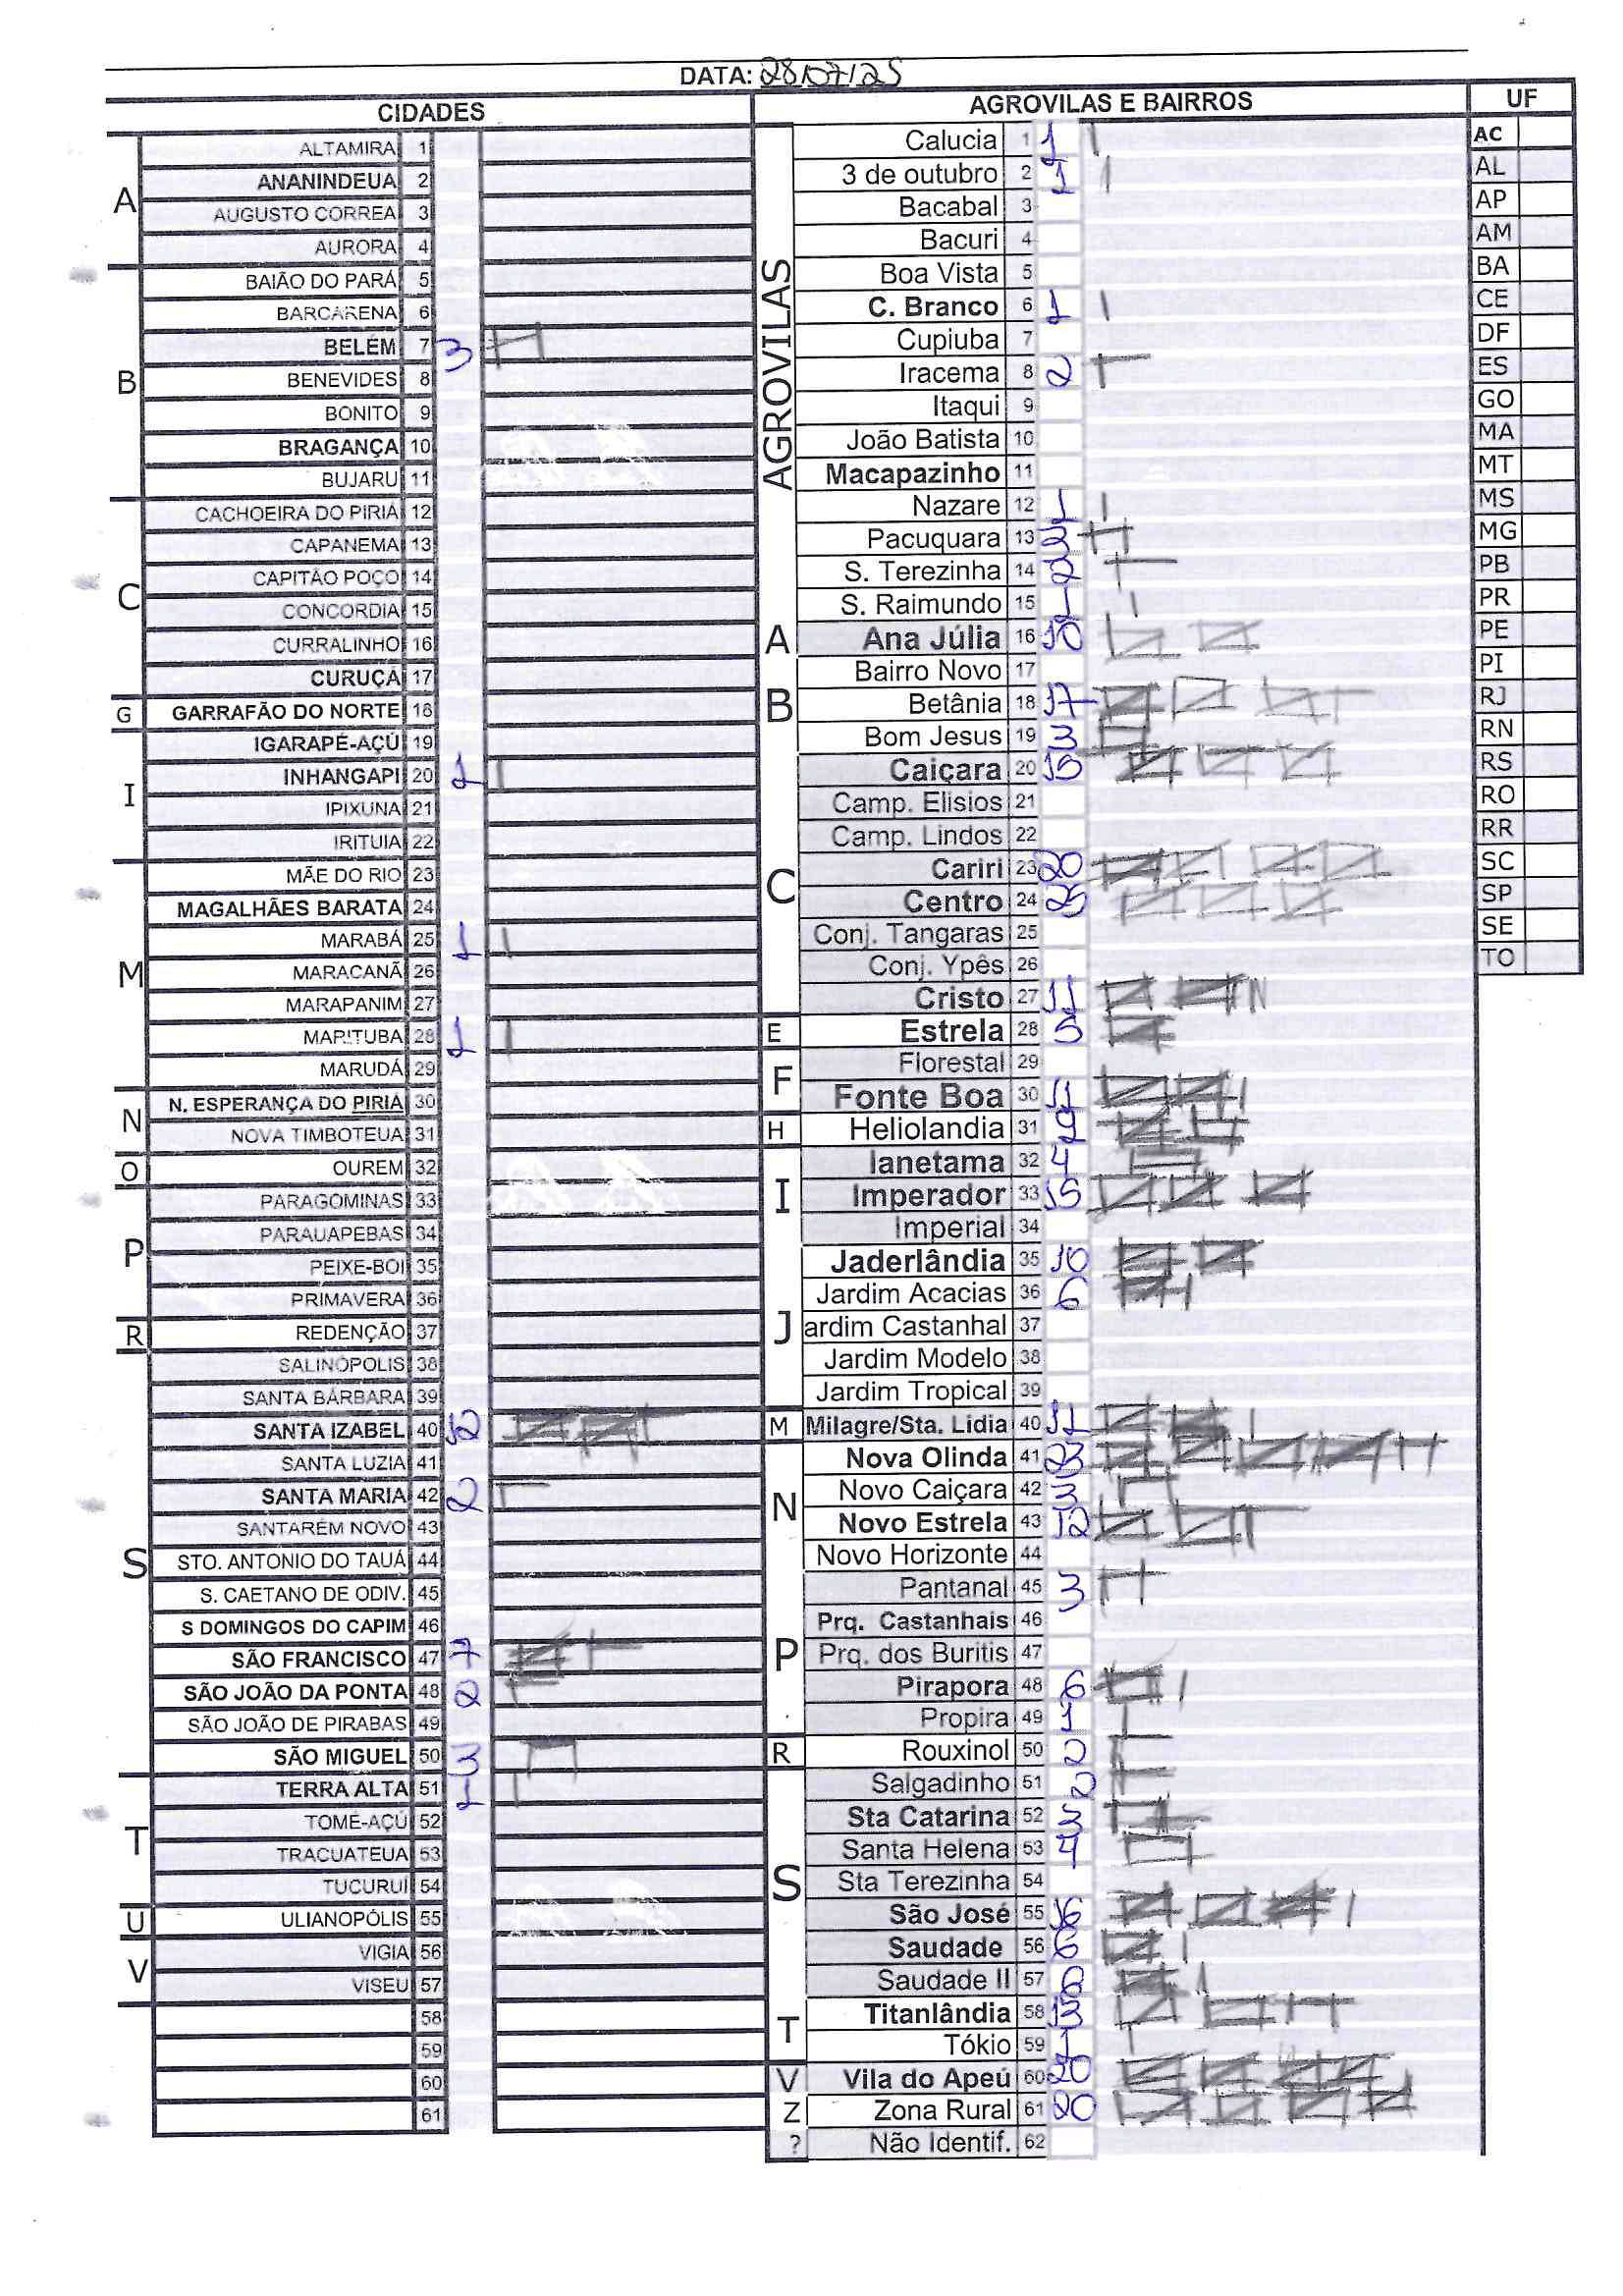 DATA: 28/07/25
CIDADES
A
ALTAMIRA 1
ANANINDEUA 2
AUGUSTO CORREA 3
AURORA 4
B
BAIÃO DO PARÁ 5
BARCARENA 6
BELÉM 7 3
BENEVIDES 8
BONITO 9
BRAGANÇA 10
BUJARU 11
C
CACHOEIRA DO PIRIÁ 12
CAPANEMA 13
CAPITÃO POÇO 14
CONCORDIA 15
CURRALINHO 16
CURUÇÁ 17
G
GARRAFÃO DO NORTE 18
I
IGARAPÉ-AÇÚ 19
INHANGAPI 20 1
IPIXUNA 21
IRITUIA 22
M
MÃE DO RIO 23
MAGALHÃES BARATA 24
MARABÁ 25 1
MARACANÃ 26
MARAPANIM 27
MARITUBA 28 1
MARUDÁ 29
N
N. ESPERANÇA DO PIRIA 30
NOVA TIMBOTEUA 31
O
OUREM 32
P
PARAGOMINAS 33
PARAUAPEBAS 34
PEIXE-BOI 35
PRIMAVERA 36
R
REDENÇÃO 37
S
SALINÓPOLIS 38
SANTA BÁRBARA 39
SANTA IZABEL 40 12
SANTA LUZIA 41
SANTA MARIA 42 2
SANTARÉM NOVO 43
STO. ANTONIO DO TAUÁ 44
S. CAETANO DE ODIV. 45
S DOMINGOS DO CAPIM 46
SÃO FRANCISCO 47 7
SÃO JOÃO DA PONTA 48 2
SÃO JOÃO DE PIRABAS 49
SÃO MIGUEL 50 3
T
TERRA ALTA 51 1
TOMÉ-AÇÚ 52
TRACUATEUA 53
TUCURUÍ 54
U
ULIANOPÓLIS 55
V
VIGIA 56
VISEU 57
58
59
60
61
AGROVILAS E BAIRROS
AGROVILAS
Calucia 1 1
3 de outubro 2 1
Bacabal 3
Bacuri 4
Boa Vista 5
C. Branco 6 1
Cupiuba 7
Iracema 8 2
Itaqui 9
João Batista 10
Macapazinho 11
Nazare 12 1
Pacuquara 13
S. Terezinha 14 2
S. Raimundo 15 1
A
Ana Júlia 16 10
B
Bairro Novo 17
Betânia 18 17
Bom Jesus 19 3
C
Caiçara 20 15
Camp. Elisios 21
Camp. Lindos 22
Cariri 23 20
Centro 24 25
Conj. Tangaras 25
Conj. Ypês 26
Cristo 27 11
E
Estrela 28 5
F
Florestal 29
Fonte Boa 30 11
H
Heliolandia 31 9
I
Ianetama 32 4
Imperador 33 15
Imperial 34
J
Jaderlândia 35 10
Jardim Acacias 36 6
ardim Castanhal 37
Jardim Modelo 38
Jardim Tropical 39
M
Milagre/Sta. Lidia 40 11
N
Nova Olinda 41 23
Novo Caiçara 42 3
Novo Estrela 43 12
Novo Horizonte 44
P
Pantanal 45 3
Prq. Castanhais 46
Prq. dos Buritis 47
Pirapora 48 6
Propira 49 1
R
Rouxinol 50 2
S
Salgadinho 51 2
Sta Catarina 52 3
Santa Helena 53 4
Sta Terezinha 54
São José 55 16
Saudade 56 6
Saudade II 57 6
T
Titanlândia 58 13
Tókio 59 1
V
Vila do Apeú 60 20
Z
Zona Rural 61 20
?
Não Identif. 62
UF
AC
AL
AP
AM
BA
CE
DF
ES
GO
MA
MT
MS
MG
PB
PR
PE
PI
RJ
RN
RS
RO
RR
SC
SP
SE
TO